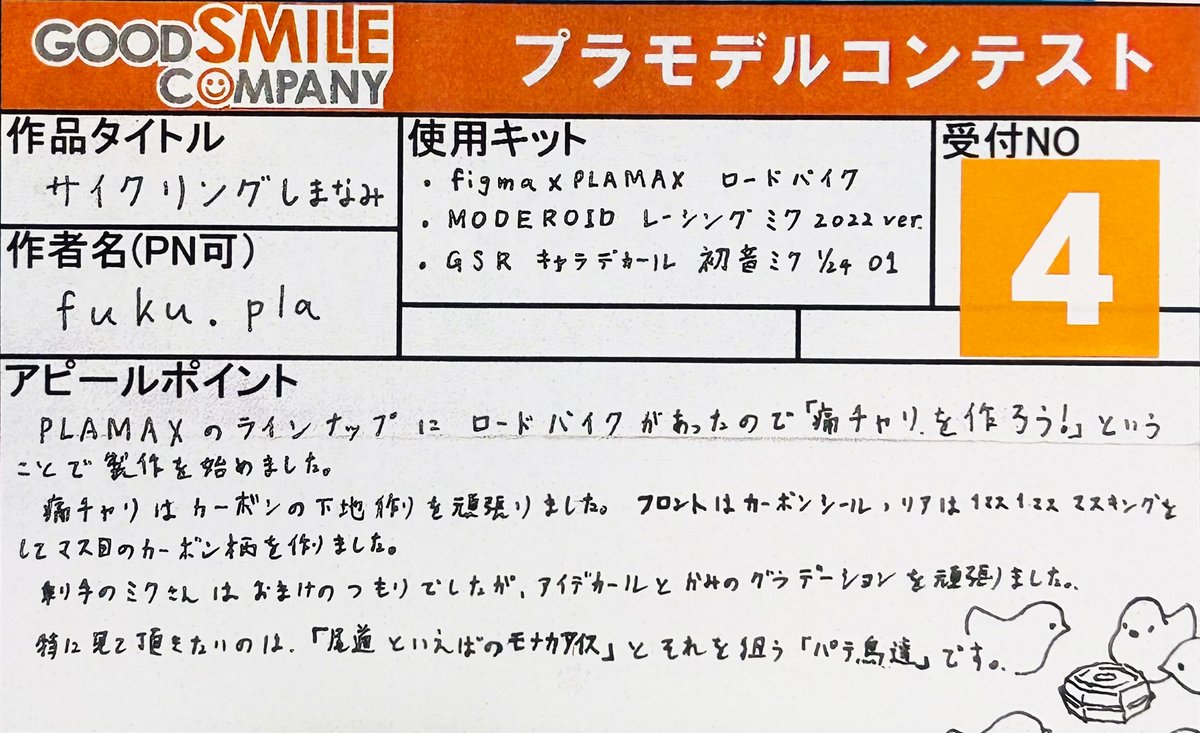 GOOD SMILE COMPANY
プラモデルコンテスト
作品タイトル
サイクリングしまなみ
作者名(PN可)
fuku.pla
使用キット
・figma×PLAMAX ロードバイク
・MODEROID レーシングミク2022 ver.
・GSR キャラデカール 初音ミク 1/24 01
受付NO
4
アピールポイント
PLAMAXのラインナップに ロードバイクがあったので「痛チャリを作ろう!」という
ことで製作を始めました。
痛チャリはカーボンの下地作りを頑張りました。 フロントはカーボンシール、リアは1マス1マス マスキングを
してマス目のカーボン柄を作りました。
乗り手のミクさんはおまけのつもりでしたが、アイデカールとかみのグラデーションを頑張りました。
特に見て頂きたいのは、「尾道といえばのモナカアイス」とそれを狙う「パテ鳥達」です。